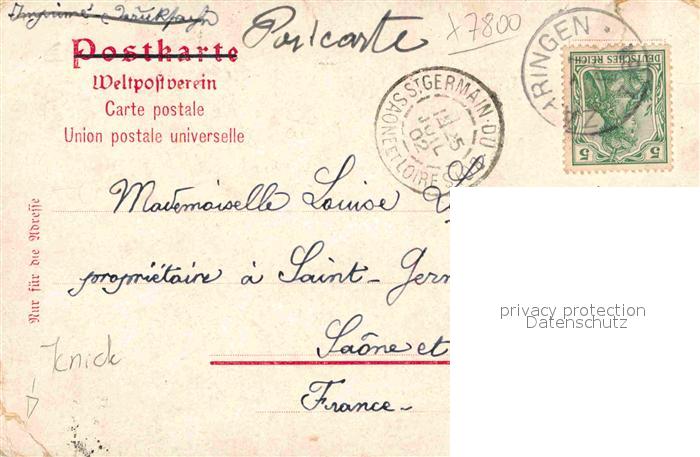 Imprimé - Drucksache
Postcarte
x7800
Postkarte
Weltpostverein
Carte postale
Union postale universelle
DEUTSCHES REICH
5 5
ARINGEN
ST GERMAIN-DU
25
JUIL
02
SAONE ET LOIRE
Mademoiselle Louise
propriétaire à Saint-Ger
Saône et
France-
Nur für die Adresse
Knick
privacy protection
Datenschutz